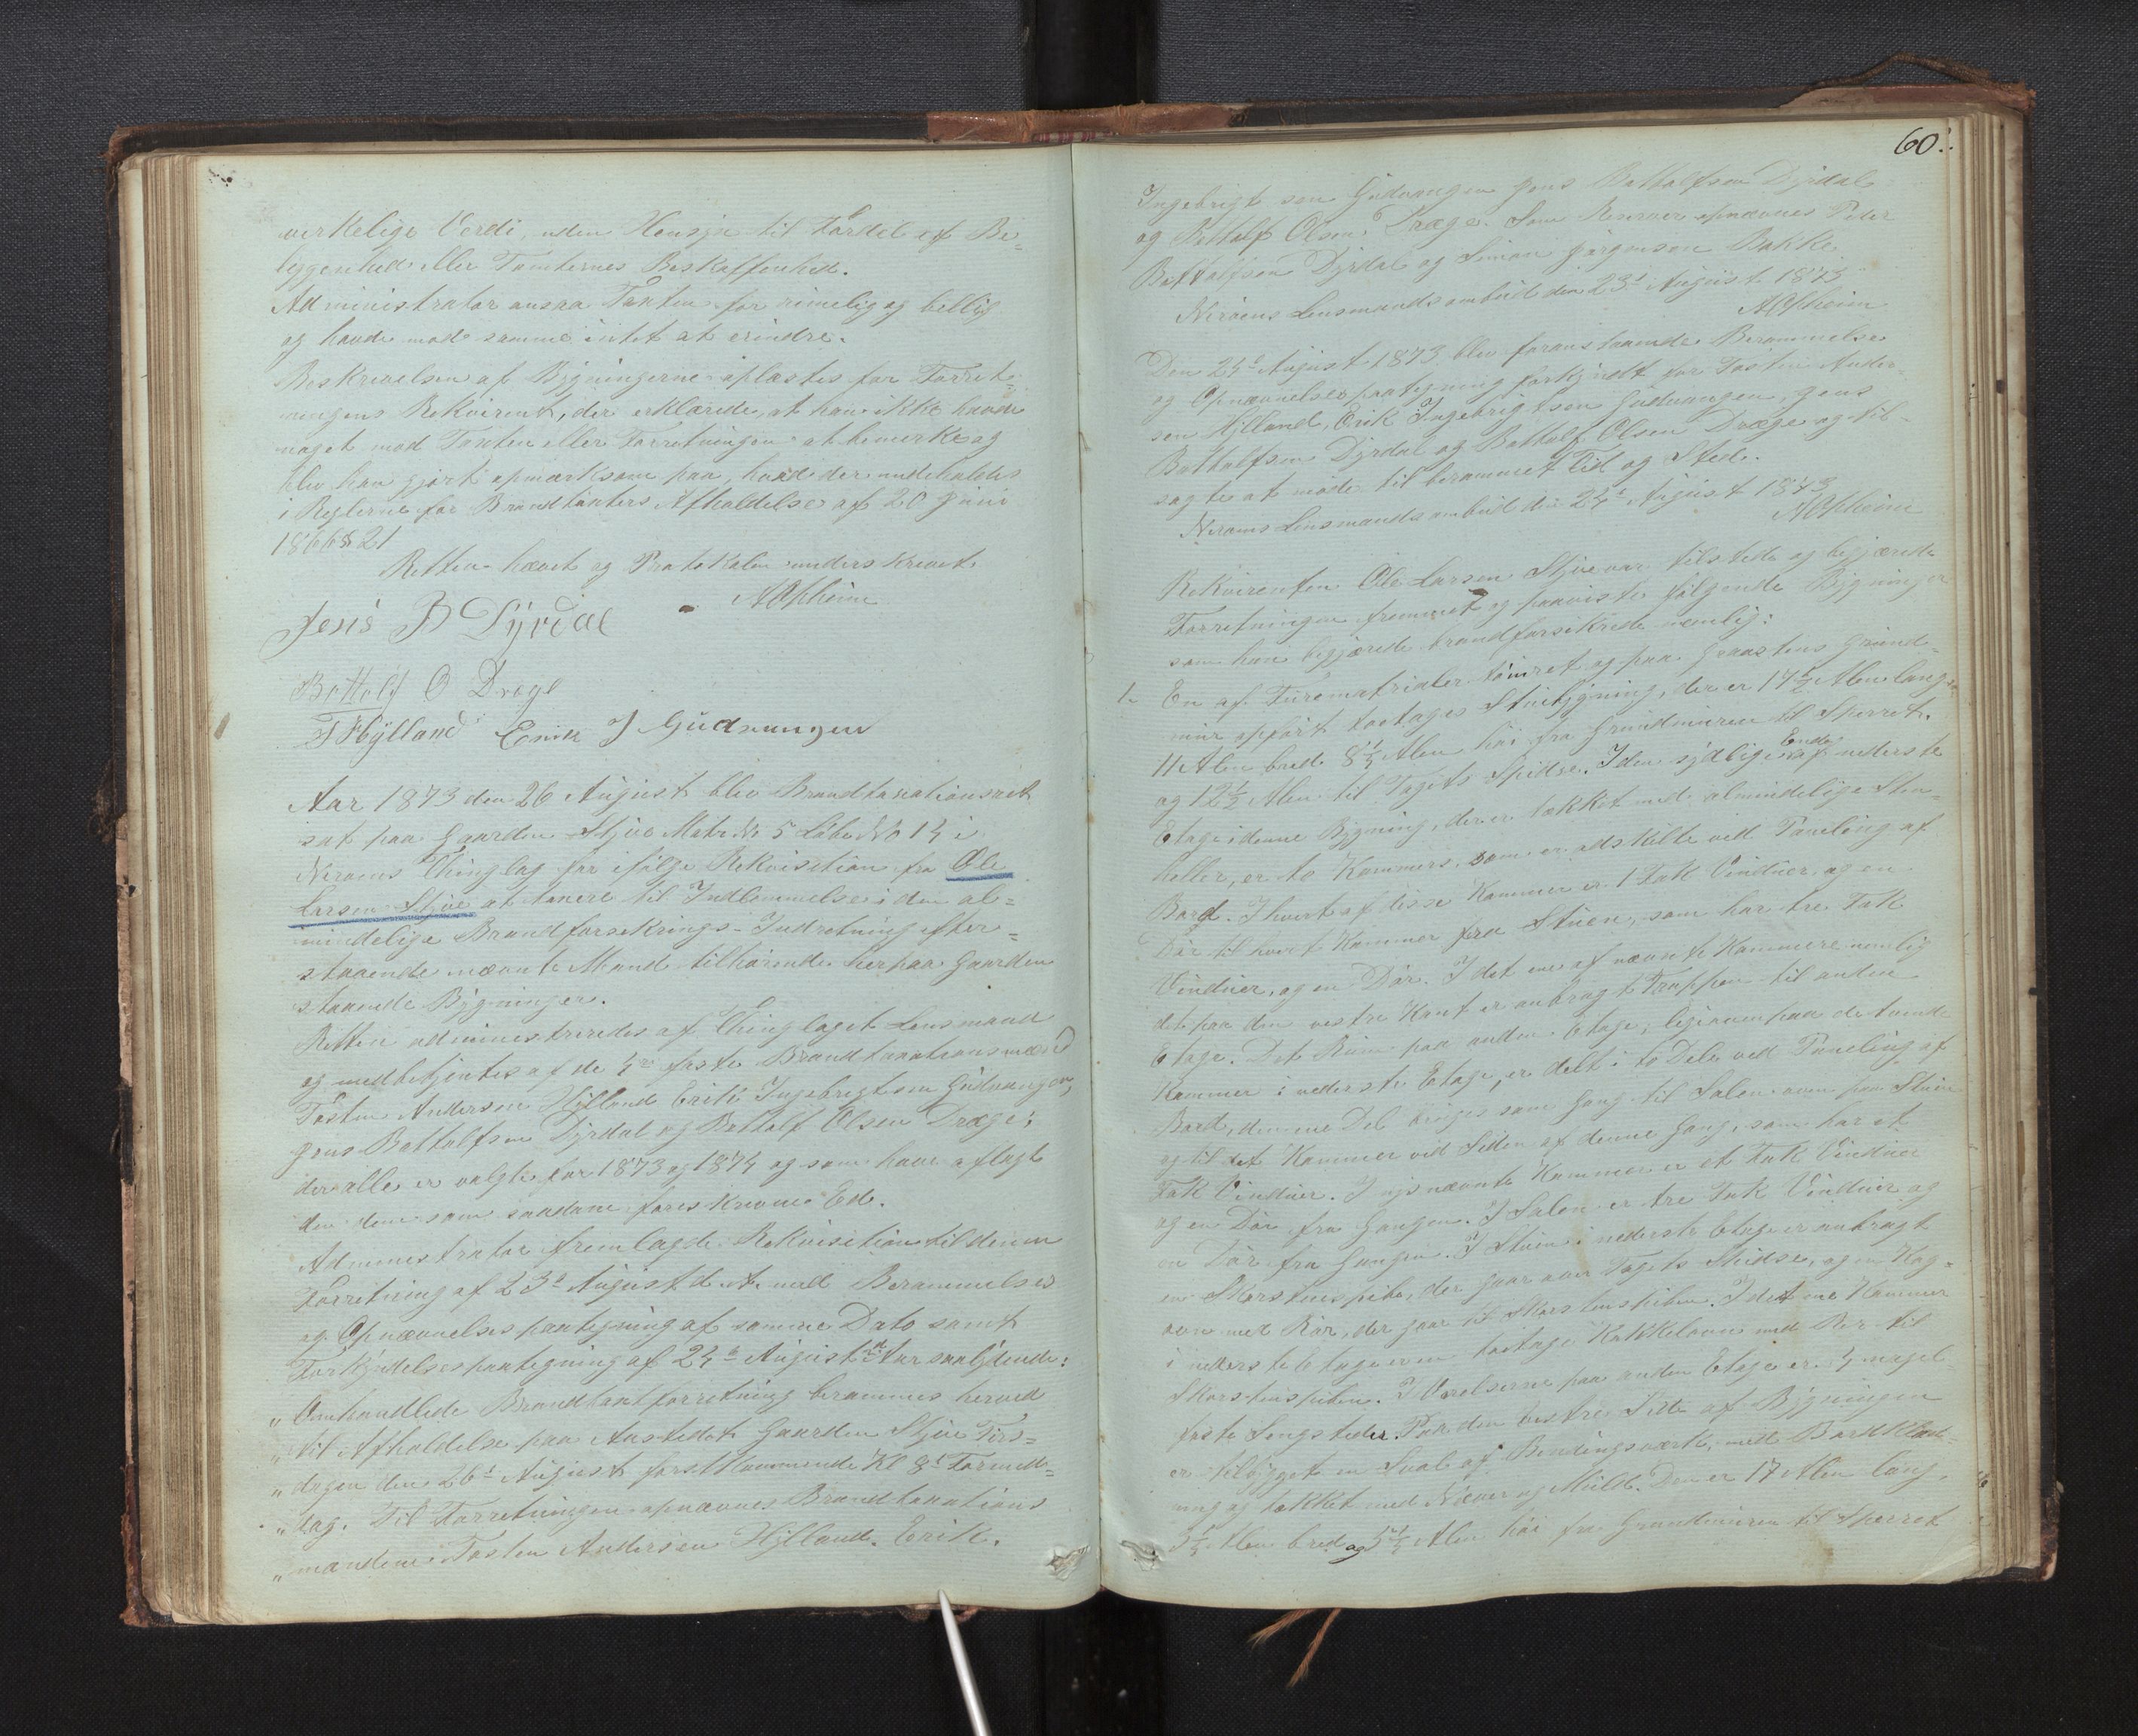 virkelige Verdi, uden Hensyn til Fordel af Be=
liggenhed eller Tomternes Beskaffenhed.
Administrator ansaa Taxten for rimelig og billig
og havde mod samme intet at erindre.
Beskrivelsen af Bygningerne oplæstes for Forret=
ningens Rekvirent, der erklærede, at han ikke havde
noget mod Taxten eller Forretningen at bemerke og
blev han gjort opmærksom paa, hvad der indeholdes
i Reglerne for Brandtaxters Afholdelse af 20 Juni
1866 § 21
Retten hævet og Protokolen underskrevet.
AOpheim
Jens B Dyrdal
Bottolf O Drege
T A Hylland Erik J Gudvangen
Aar 1873 den 26 August blev Brandtaxationsret
sat paa Gaarden Stjve Matr No 5 Løbe No 14 i
Nerøens Thinglag for ifølge Rekvisition fra Ole
Larsen Stjve at taxere til Indlemmelse i den al=
mindelige Brandforsekrings-Indretning efter=
staaende nævnte Mand tilhørende herpaa Gaarden
staaende Bygninger.
Retten administreredes af Thinglagets Lensmand
og medbetjentes af de 4re faste Brandtaxationsmænd
Tosten Andersen Hylland Erik Ingebrigtsen Gudvangen,
Jens Bottolfsen Dyrdal og Bottolf Olsen Drege;
der alle er valgte for 1873 og 1874 og som have aflagt
den dem som saadane foreskrevne Ed.
Administrator fremlagde Rekvisition til denne
Forretning af 23de August d. A. med Berammelses
og Opnævnelsespaategning af samme Dato samt
Forkyndelsespaategning af 24de August d.A. saalydende:
"Omhandlede Brandtaxtforretning berammes herved
"til Afholdelse paa Aastedet Gaarden Stjve Tirs=
"dagen den 26de August førstkommende Kl 8t Formid=
"dag. Til Forretningen opnævnes Brandtaxations
"mændene: Tosten Andersen Hylland. Erik.
60.
Ingebrigtsen Gudvangen Jens Bottolfsen Dyrdal
og Bottolf Olsen Drege. Som Reserver opnævnes Peder
Bottolfsen Dyrdal og Simon Jørgensen Bakke
Nerøens Lensmandsombud den 23de August 1873
AOpheim
Den 24de August 1873 blev foranstaaende Berammelse
og Opnævnelsespaategning forkyndt for Tosten Ander=
sen Hylland, Erik Ingebrigtsen Gudvangen, Jens
Bottolfsen Dyrdal og Bottolf Olsen Drege og til=
sagte at møde til berammet Tid og Sted.
Nerøens Lensmandsombud den 24de August 1873
AOpheim
Rekvirenten Ole Larsen Stjve var tilstede og begjærede
Forretningen fremmet og paaviste følgende Bygninger
som han begjærede brandforsikrede nemlig:
1. En af Furematrialer tømret og paa Graastens Grund=
mur opført toetages Stuebygning, der er 17½ Alen lang
11 Alen bred 8¼ Alen høi fra Grundmuren til Sperret.
og 12½ Alen til Tagets Spidse. I den sydlige Ende af nederste
Etage i denne Bygning, der er tækket med almindelige Sten=
heller, er to Kammers, som er adskilte ved Paneling af
Bord. I hvert af disse Kammer er 1 Fak Vinduer, og en
Dør til hvert Kammer fra Stuen, som har tre Fak
Vinduer, og en Dør. I det ene af nævnte Kammere nemlig
det paa den vestre Kant er anbragt Trappen til anden
Etage. Det Rum paa anden Etage, lige ovenpaa de tvende
Kammer i nederste Etage, er delt i to Dele ved Paneling af
Bord, den ene Del bruges som Gang til Salen oven paa Stuen
og til det Kammer ved Siden af denne Gang, som har et
Fak Vinduer. I nysnævnte Kammer er et Fak Vinduer
og en Dør fra Gangen. I Salen er tre Fak Vinduer og
en Dør fra Gangen. I Stuen i nederste Etage er anbragt
en Skorstenspibe, der gaar over Tagets Spidse, og en Kog=
ovn med Rør, der gaar til Skorstenspiben. I det ene Kammer
i nederste Etage er en toetage Kakkelovn med Rør til
Skorstenspiben. I Værelserne paa anden Etage er 4 nagel=
faste Sengsteder. Paa den vestre Side af Bygningen
er tilbygget en Sval af Bindingsværk, med Bordklæd=
ning og tækket med Næver og Muld. Den er 17 Alen lang,
3¼ Alen bred og 5¼ Alen høi fra Grundmuren til Sperret